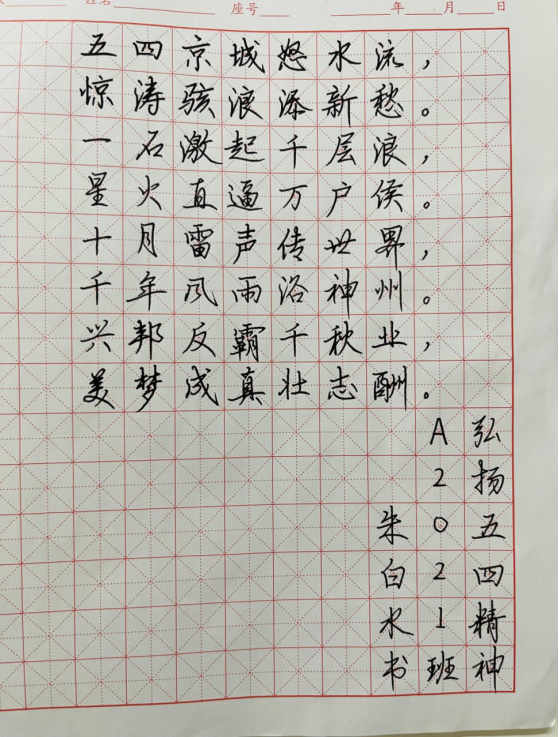 姓名 座号 年 月 日
五四京城怒水流，
惊涛骇浪添新愁。
一石激起千层浪，
星火直逼万户侯。
十月雷声传世界，
千年风雨浴神州。
兴邦反霸千秋业，
美梦成真壮志酬。
弘扬五四精神
A2021班
朱白水书